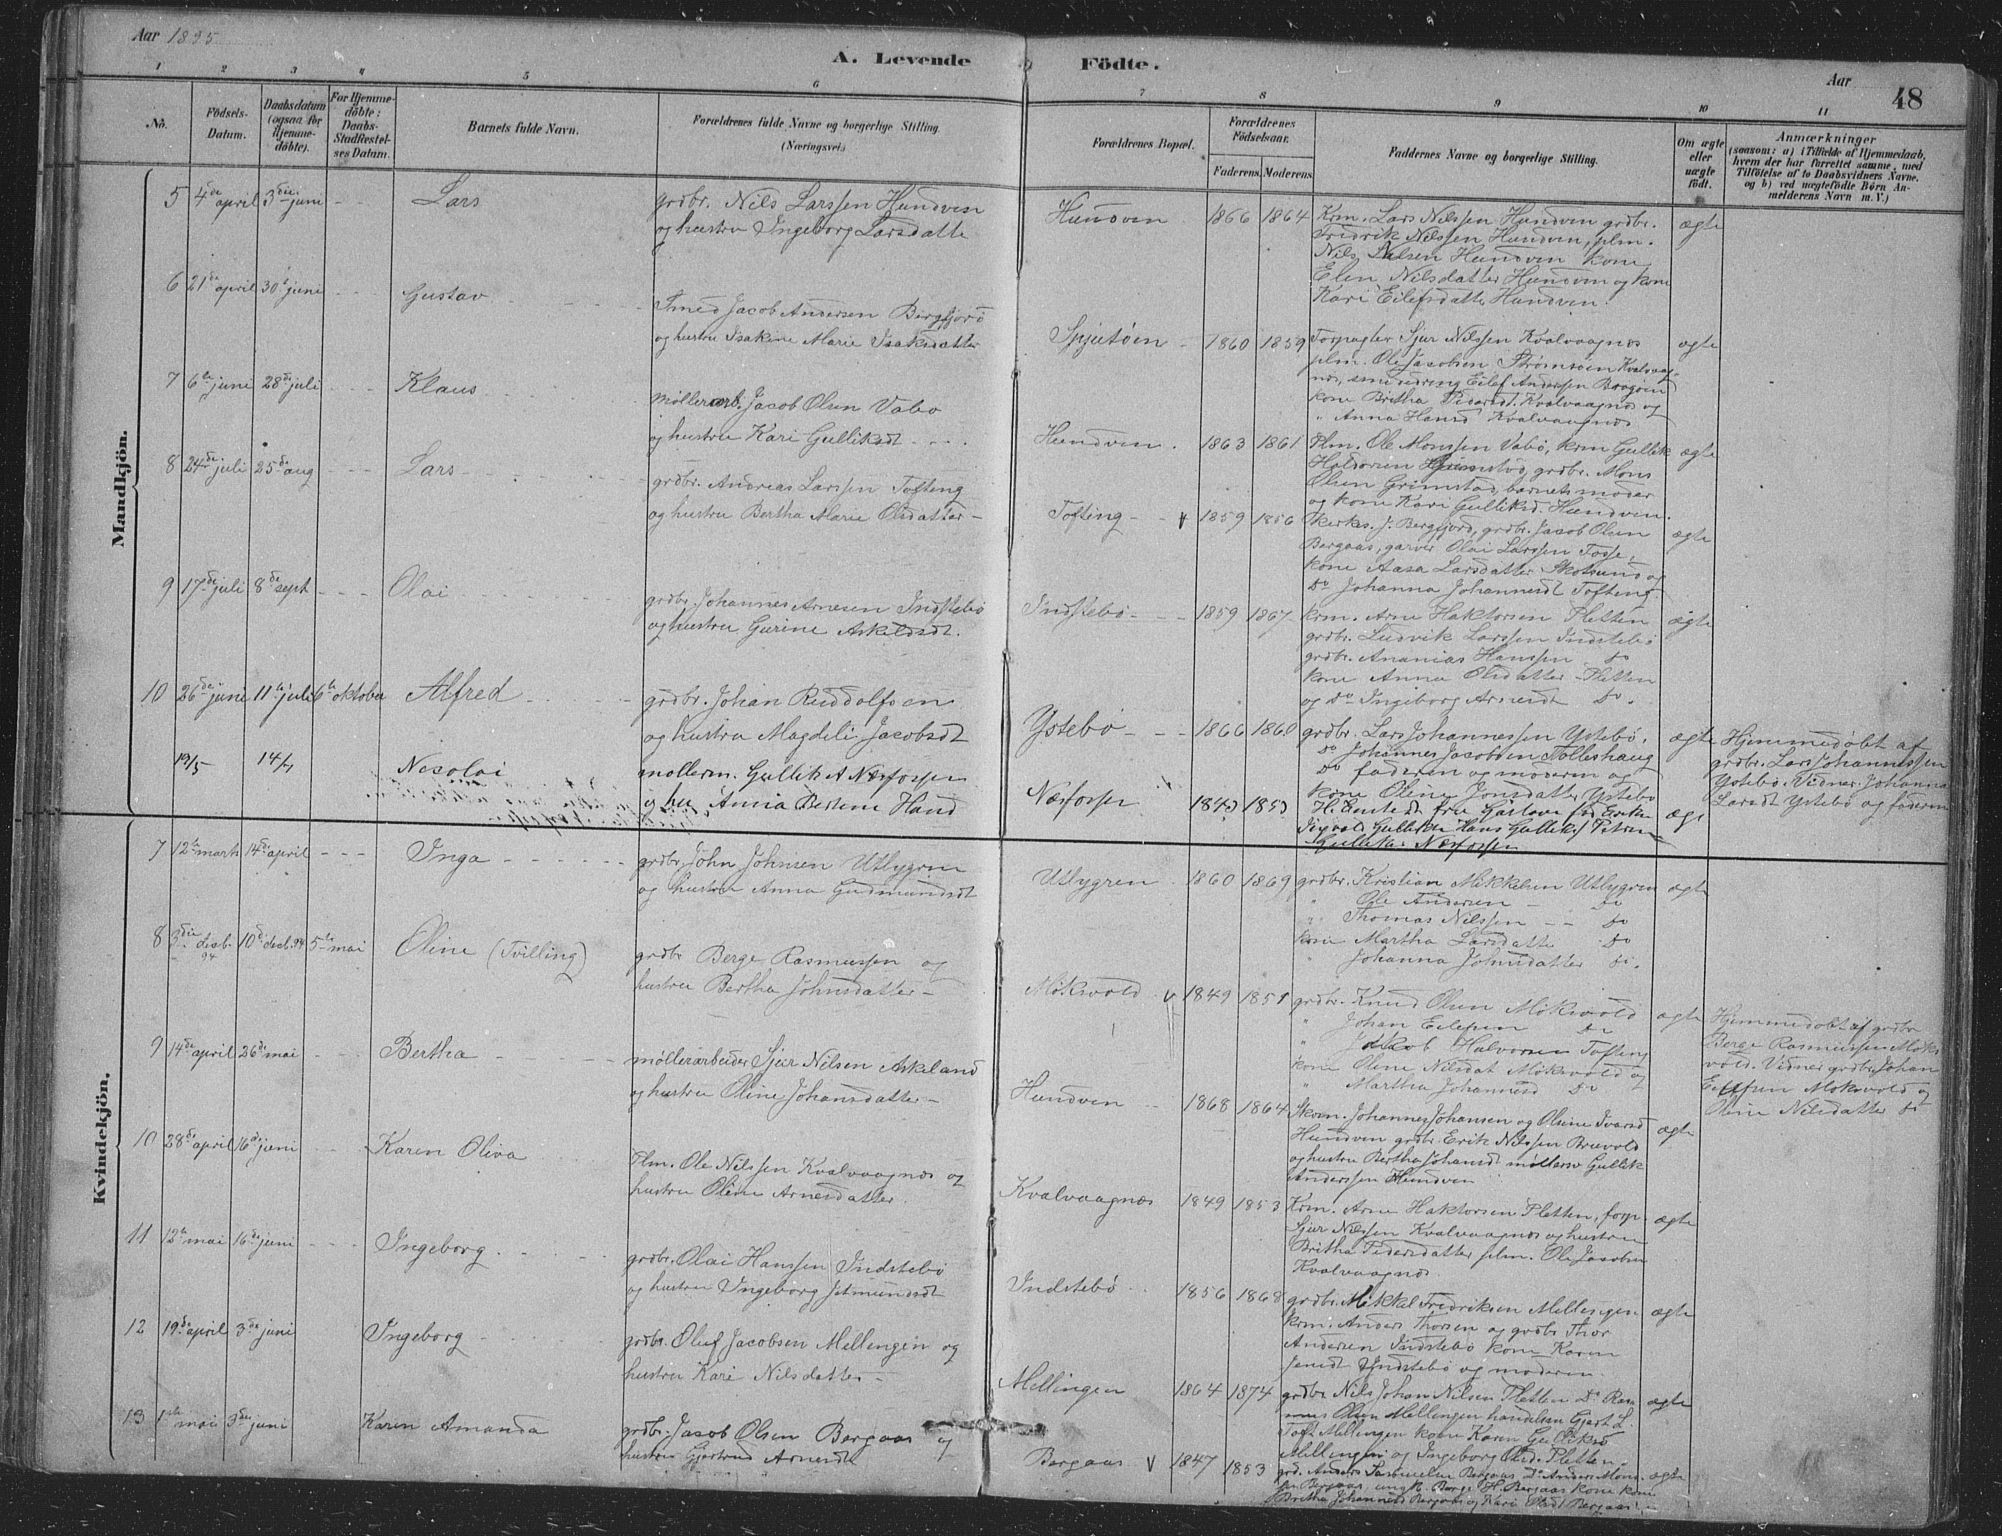 Aar 1895
A. Levende Födte.
Aar
48
1 2 3 4 5 6 7 8 9 10 11
No.
Födsels-
Datum.
Daabsdatum
(ogsaa for
Hjemme-
döbte).
For Hjemme-
döbte:
Daabs-
Stadfæstel-
ses Datum.
Barnets fulde Navn.
Forældrenes fulde Navne og borgerlige Stilling.
(Næringsvei.)
Forældrenes Bopæl.
Forældrenes
Födselsaar.
Faderens. Moderens.
Faddernes Navne og borgerlige Stilling.
Om ægte
eller
uægte
födt.
Anmærkninger
(saasom: a) i Tilfælde af Hjemmedaab,
hvem der har forrettet samme, med
Tilföielse af to Daabsvidners Navne,
og b) ved uægtefödte Börn An-
melderens Navn m. V.)
Mandkjön.
5 4de april 3die juni Lars
grdbr. Nils Larssen Hundven
og hustru Ingeborg Larsdatte
Hundven 1866 1864
Krm. Lars Nilssen Hundven grdbr.
Fredrik Nilssen Hundven, plm.
Nils Nilsen Hundven kone
Elen Nilsdatter Hundven og kone
Kari Eilefsdatter Hundven.
ægte
6 21de april 30te juni Gustav
Smed Jacob Andersen Bergfjord
og hustru Isakine Marie Isaksdatter
Spjutöen 1860 1859
Forpagter Sjur Nilssen Kvalvaagnæs
plm. Ole Jacobsen Strömsöen Kvalvaag-
næs, smedsdreng Eilef Andersen
kone Britha Pedersdt. Kvalvaagnæs og
" Anna Hansd Kvalvaagnæs
ægte
7 6te juni 28de juli Klaus
möllerarb. Jacob Olsen Vabö
og hustru Kari Gulliksdt
Hundven 1863 1861
Plm. Ole Monssen Vabö, krm Gullik
Haldorsen Grimstad, grdbr. Mons
Olsen Grimstad, barnets moder
og kone Kari Gulliksd. Hundven.
ægte
8 24de juli 25de aug Lars
grdbr. Andreas Larssen Tofting
og hustru Bertha Marie Olsdatter
Tofting 1859 1856
Kirkes. J. Bergfjord, grdbr. Jacob Olsen
Bergaas, garver Olai Larssen Fosse,
kone Aasa Larsdatter Skotsund og
Do Johanna Johannesdt Tofting
ægte
9 17de juli 8de sept Olai
grdbr. Johannes Arnesen Indstebö
og hustru Gurine Askildsdt.
Indstebö 1859 1867
krm. Arne Haktorsen Pletten
grdbr. Ludvik Larssen Indstebö
grdbr. Ananias Hanssen do
kone Anna Olsdatter Pletten
og Do Ingeborg Arnesdt Do.
ægte
10 26de juni 11te juli 6te oktober Alfred
grdbr. Johan Ruddolfsen
og hustru Magdeli Jacobsdt
Ystebö 1866 1860
grdbr. Lars Johannessen Ystebö,
Do Johannes Jacobsen Tolleshaug
Do faderen og moderen og
kone Oline Jonsdatter Ystebö
ægte
Hjemmedöbt af
grdbr. Lars Johannessen
Ystebö. Vidner: Johanna
Larsdt Ystebö og faderen
19/5 14/7 Nicolai
möllerm. Gullik A Næsfossen
og hu Anna Bertene Hand
Næsfossen
Gulliks Næsfossen
ægt
Kvindekjön.
7 12te marts 14de april Inga
grdbr. John Johnsen Utlygren
og hustru Anna Gudmundsdt
Utlygren 1860 1869
grdbr. Kristian Mikkelsen Utlygren
" Ole Andersen do
" Thomas Nilssen do
kone Martha Larsdatter do
" Johanna Johnsdatter do.
ægte
8 3die decb. 94 10de decb. 94 5te mai Oline (Tvilling)
grdbr Berge Rasmussen og
hustru Bertha Johnsdatter
Mökvold 1849 1851
grdbr. Knud Olsen Mökvold
" Johan Eilefsen do
" Jakob Halvorsen Tofting
kone Oline Nilsdat Mökvold og
" Martha Johannesd do
ægte
Hjemmedöbt af grdbr
Berge Rasmussen Mök-
vold. Vidner grdbr Johan
Eilefsen Mokvold og
Oline Nilsdatter do
9 14de april 26de mai Bertha
möllerarbeider Sjur Nilsen Askeland
og hustru Oline Johansdatter
Hundven 1868 1864
Skom. Johannes Johansen og Oline Ivarsd
Hundven grdbr. Erik Nilssen Brævold
og hustru Bertha Johansdt möllersv Gullik
Anderssen Hundven
ægte
10 28de april 16de juni Karen Oliva
Plm. Ole Nilssen Kvalvaagnæs og
hustru Oline Arnesdatter.
Kvalvaagnæs 1849 1853
Krm. Arne Haktorsen Pletten, forp.
Sjur Nilssen Kvalvaagnæs og hustru
Britha Pedersdatter plm. Ole Jacobsen
Kvalvaagnæs.
ægte
11 12te mai 16de juni Ingeborg
grdbr. Olai Hanssen Indstebö
og hustru Ingeborg Jetmundsdt
Indstebö 1856 1868
grdbr. Mikkel Fredriksen Mellengen
krm. Anders Thorsen og grdbr Thor
Andersen Indstebö kone Karen
Jensdt Indstebö og moderen
ægte
12 19de april 3de juni Ingeborg
grdbr. Oluf Jacobsen Mellengen og
hustru Kari Nilsdatter
Mellingen 1864 1874
grdbr Nils Johan Nilsen Pletten Do Ras-
mus Olsen Mellengen handelsm Gjert L.
Toft Mellingen kone Karen
Mellingen og Ingeborg Olsd. Pletten
ægte
13 1ste mai 3die juni Karen Amanda
grdbr. Jacob Olsen Bergaas og
hustru Gjertrud Arnesdt
Bergaas 1847 1853
grd. Anders Samuelsen Bergaas Do Anders Mons-
sen Bergaas ungk. Berge H. Bergaas kone
Britha Johannesd Bergaas og Kari Olsdt Bergaas
ægte